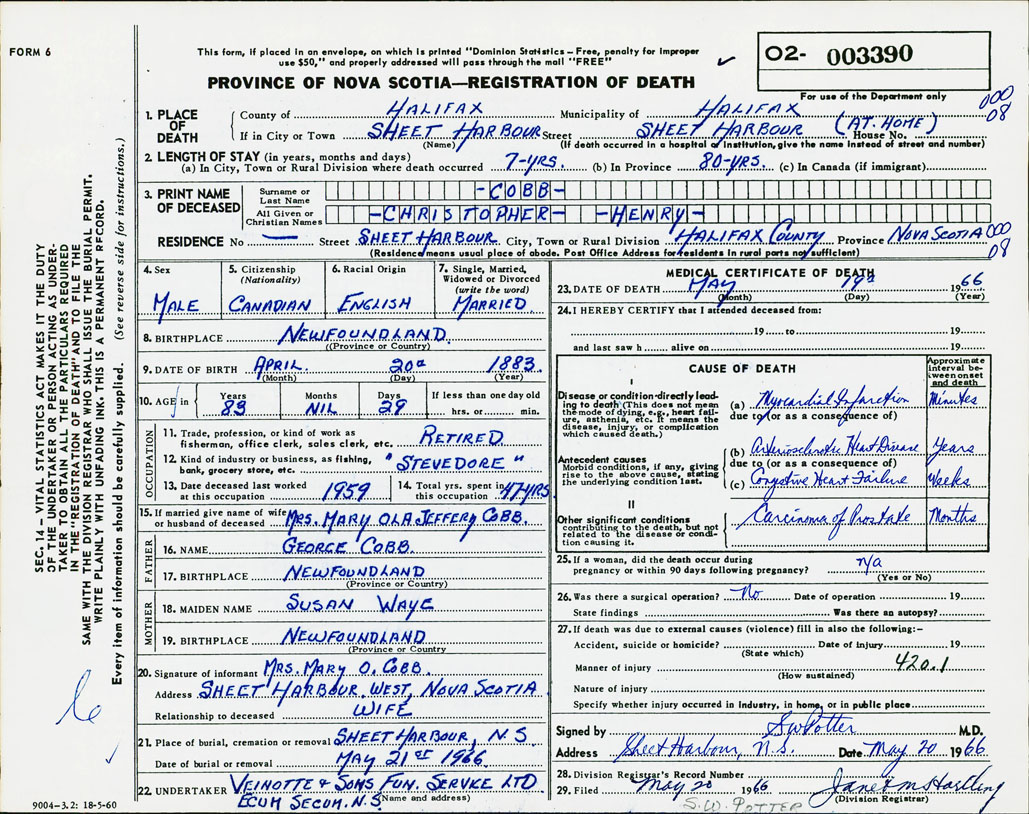 FORM 6
This form, if placed in an envelope, on which is printed "Dominion Statistics – Free, penalty for improper
use $50," and properly addressed will pass through the mail "FREE"
✓
O2- 003390
For use of the Department only
PROVINCE OF NOVA SCOTIA—REGISTRATION OF DEATH
000
08
1. PLACE OF DEATH
County of HALIFAX Municipality of HALIFAX
If in City or Town SHEET HARBOUR Street SHEET HARBOUR (AT. HOME) House No.
(Name) (If death occurred in a hospital or institution, give the name instead of street and number)
2. LENGTH OF STAY (in years, months and days)
(a) In City, Town or Rural Division where death occurred 7-YRS. (b) In Province 80-YRS. (c) In Canada (if immigrant)
3. PRINT NAME OF DECEASED
Surname or Last Name -COBB-
All Given or Christian Names -CHRISTOPHER- -HENRY-
RESIDENCE No — Street SHEET HARBOUR City, Town or Rural Division HALIFAX COUNTY Province NOVA SCOTIA 000
08
(Residence means usual place of abode. Post Office Address for residents in rural parts not sufficient)
4. Sex
MALE
5. Citizenship
(Nationality)
CANADIAN
6. Racial Origin
ENGLISH
7. Single, Married,
Widowed or Divorced
(write the word)
MARRIED
8. BIRTHPLACE NEWFOUNDLAND.
(Province or Country)
9. DATE OF BIRTH APRIL. 20th 1883
(Month) (Day) (Year)
10. AGE in
Years
83
Months
NIL
Days
29
If less than one day old
hrs. or min.
OCCUPATION
11. Trade, profession, or kind of work as
fisherman, office clerk, sales clerk, etc. RETIRED
12. Kind of industry or business, as fishing,
bank, grocery store, etc. "STEVEDORE"
13. Date deceased last worked
at this occupation 1959
14. Total yrs. spent in
this occupation 47 YRS
15. If married give name of wife
or husband of deceased MRS. MARY OLA JEFFERY COBB.
FATHER
16. NAME GEORGE COBB.
17. BIRTHPLACE NEWFOUNDLAND
(Province or Country)
MOTHER
18. MAIDEN NAME SUSAN WAYE
19. BIRTHPLACE NEWFOUNDLAND
(Province or Country
20. Signature of informant MRS. MARY O. COBB.
Address SHEET HARBOUR, WEST, NOVA SCOTIA
Relationship to deceased WIFE
21. Place of burial, cremation or removal SHEET HARBOUR, N.S.
Date of burial or removal MAY 21st 1966
22. UNDERTAKER VEINOTTE & SONS FUN. SERVICE LTD
ECUM SECUM. N.S. (Name and address)
9004–3.2: 18-5-60
MEDICAL CERTIFICATE OF DEATH
23. DATE OF DEATH MAY 19th 1966
(Month) (Day) (Year)
24. I HEREBY CERTIFY that I attended deceased from:
19 to 19
and last saw h alive on 19
CAUSE OF DEATH
Approximate
interval be-
tween onset
and death
I
Disease or condition directly lead-
ing to death (This does not mean
the mode of dying, e.g., heart fail-
ure, asthenia, etc. It means the
disease, injury, or complication
which caused death.)
(a) Myocardial Infarction Minutes
due to (or as a consequence of)
Antecedent causes
Morbid conditions, if any, giving
rise to the above cause, stating
the underlying condition last.
(b) Arteriosclerotic Heart Disease Years
due to (or as a consequence of)
(c) Congestive Heart Failure Weeks
II
Other significant conditions
contributing to the death, but not
related to the disease or condi-
tion causing it.
Carcinoma of Prostate Months
25. If a woman, did the death occur during
pregnancy or within 90 days following pregnancy? n/a
(Yes or No)
26. Was there a surgical operation? No Date of operation 19
State findings Was there an autopsy?
27. If death was due to external causes (violence) fill in also the following:–
Accident, suicide or homicide? Date of injury 19
(State which)
Manner of injury 420.1
(How sustained)
Nature of injury
Specify whether injury occurred in industry, in home, or in public place
Signed by SW Potter M.D.
Address Sheet Harbour, N.S. Date May 20 1966
28. Division Registrar's Record Number
29. Filed May 20 1966 Janet M Hartling
(Division Registrar)
S.W. POTTER
SEC. 14 – VITAL STATISTICS ACT MAKES IT THE DUTY
OF THE UNDERTAKER OR PERSON ACTING AS UNDER-
TAKER TO OBTAIN ALL THE PARTICULARS REQUIRED
IN THE "REGISTRATION OF DEATH" AND TO FILE THE
SAME WITH THE DIVISION REGISTRAR WHO SHALL ISSUE THE BURIAL PERMIT.
WRITE PLAINLY WITH UNFADING INK. THIS IS A PERMANENT RECORD.
Every item of information should be carefully supplied. (See reverse side for instructions.)